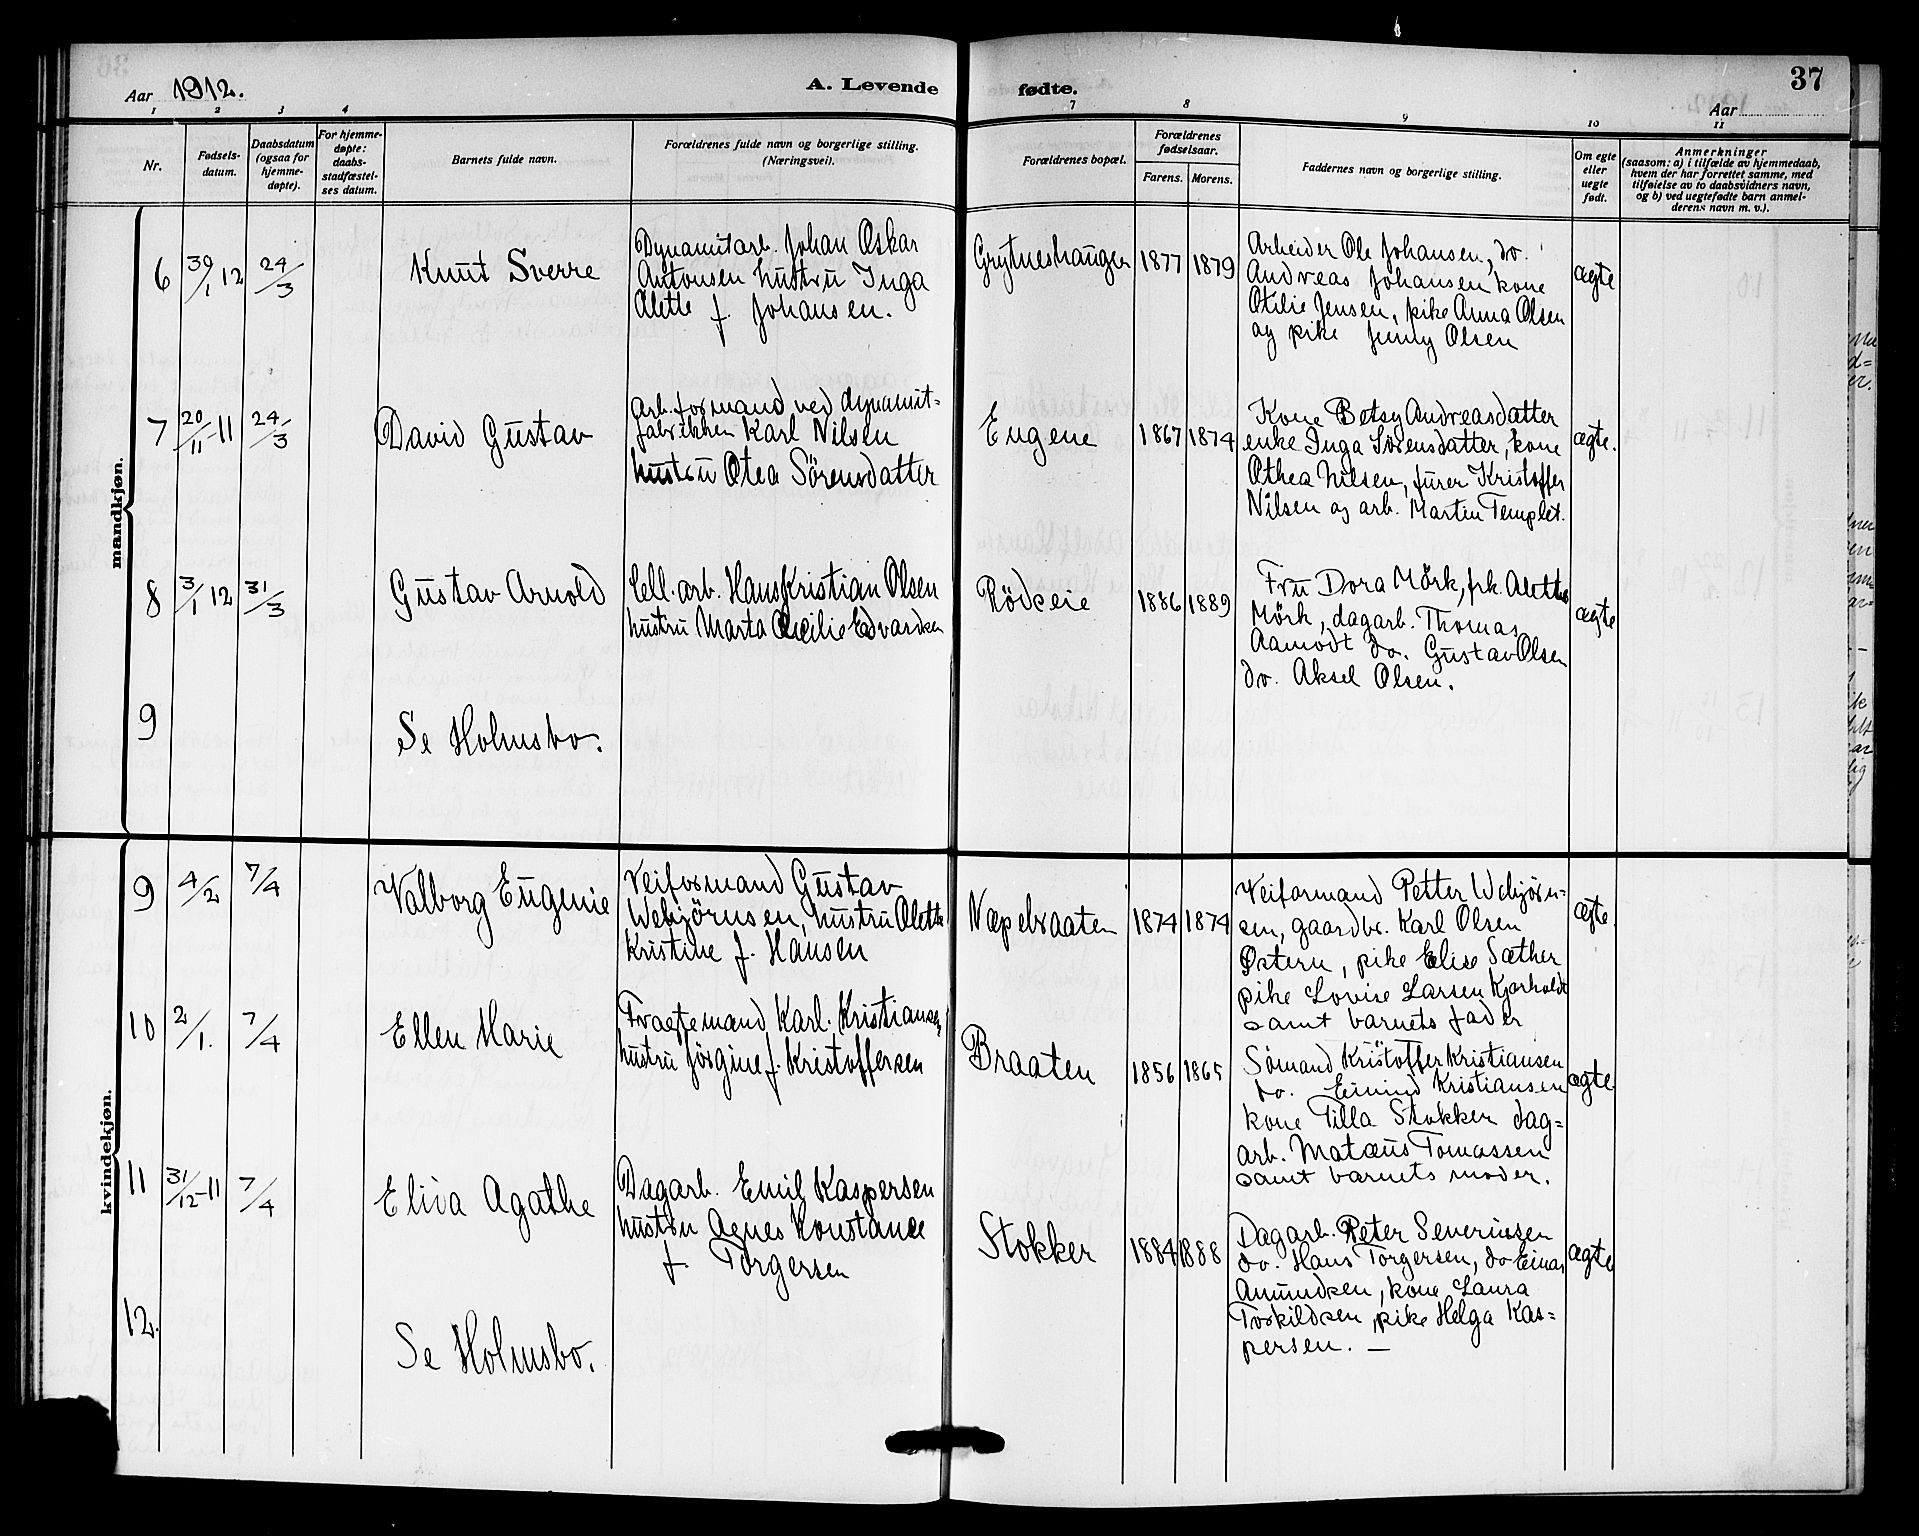 37
Aar 1912.
A. Levende fødte.
Aar
1 2 3 4 7 8 9 10 11
Nr.
Fødsels-
datum.
Daabsdatum
(ogsaa for
hjemme-
døpte).
For hjemme-
døpte:
daabs-
stadfæstel-
ses datum.
Barnets fulde navn.
Forældrenes fulde navn og borgerlige stilling.
(Næringsvei).
Forældrenes bopæl.
Forældrenes
fødselsaar.
Farens. Morens.
Faddernes navn og borgerlige stilling.
Om egte
eller
uegte
født.
Anmerkninger
(saasom: a) i tilfælde av hjemmedaab,
hvem der har forrettet samme, med
tilføielse av to daabsvidners navn,
og b) ved uegtefødte barn anmel-
derens navn m. v.).
mandkjøn.
6 30/1 12 24/3
Knut Sverre
Dynamitarb. Johan Oskar
Antonsen hustru Inga
Alette f. Johansen.
Grytneshaugen 1877 1879
Arbeider Ole Johansen, do.
Andreas Johansen kone
Otilie Jensen, pike Anna Olsen
og pike Jenny Olsen
ægte
7 20/11-11 24/3
David Gustav
Arb.formand ved dynamit-
fabrikken Karl Nilsen
hustru Otea Sørensdatter
Eugene 1867 1874
Kone Betsy Andreasdatter
enke Inga Sørensdatter, kone
Othea Nilsen, fürer Kristoffer
Nilsen og arb. Martin Templet.
ægte.
8 3/1 12 31/3
Gustav Arnold
Cell. arb. Hans Kristian Olsen
hustru Marta Cecilie Edvardsen
Rödseie 1886 1889
Fru Dora Mörk, frk. Alethe
Mörk, dagarb. Thomas
Aamodt do. Gustav Olsen
do. Aksel Olsen.
ægte
9
Se Holmsbo.
kvindekjøn.
9 4/2 7/4
Valborg Eugenie
Veiformand Gustav
Webjørnsen, hustru Alette
Kristine f. Hansen
Næpebraaten 1874 1874
Veiformand Petter Webjørn-
sen, gaardbr. Karl Olsen
Østern, pike Elise Sæther
pike Lovise Larsen Kjørholdt
samt barnets fader
ægte.
10 2/1. 7/4
Ellen Marie
Fragtemand Karl Kristiansen
hustru Jörgine f. Kristoffersen
Braaten 1856 1865
Sömand Kristoffer Kristiansen
do. Eivind Kristiansen
kone Tilla Stokker dag-
arb. Matæus Tomassen
samt barnets moder.
ægte.
11 31/12-11 7/4
Elida Agathe
Dagarb. Emil Kaspersen
hustru Agnes Konstance
f. Torgersen
Stokker 1884 1888
Dagarb. Peter Severinsen
do. Hans Torgersen, do Einar
Amundsen, kone Laura
Torkildsen, pike Helga Kas-
persen. —
ægte
12.
Se Holmsbo.